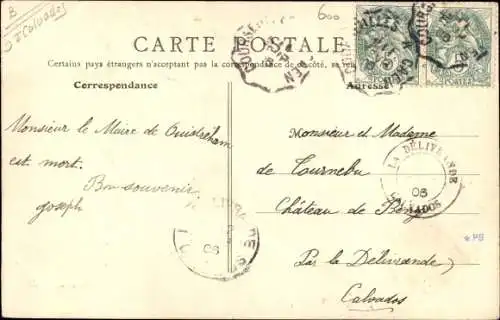 B
Calvados
600
CARTE POSTALE
Certains pays étrangers n'acceptent pas la correspondance de ce côté, se
Correspondance
Adresse
Monsieur le Maire de Ouistreham
est mort.
Bon souvenir
Joseph
Monsieur et Madame
de Tournebu
Château de
Par la Délivrande
Calvados
LA DÉLIVRANDE
06
CALVADOS
COURSEULLES
CAEN